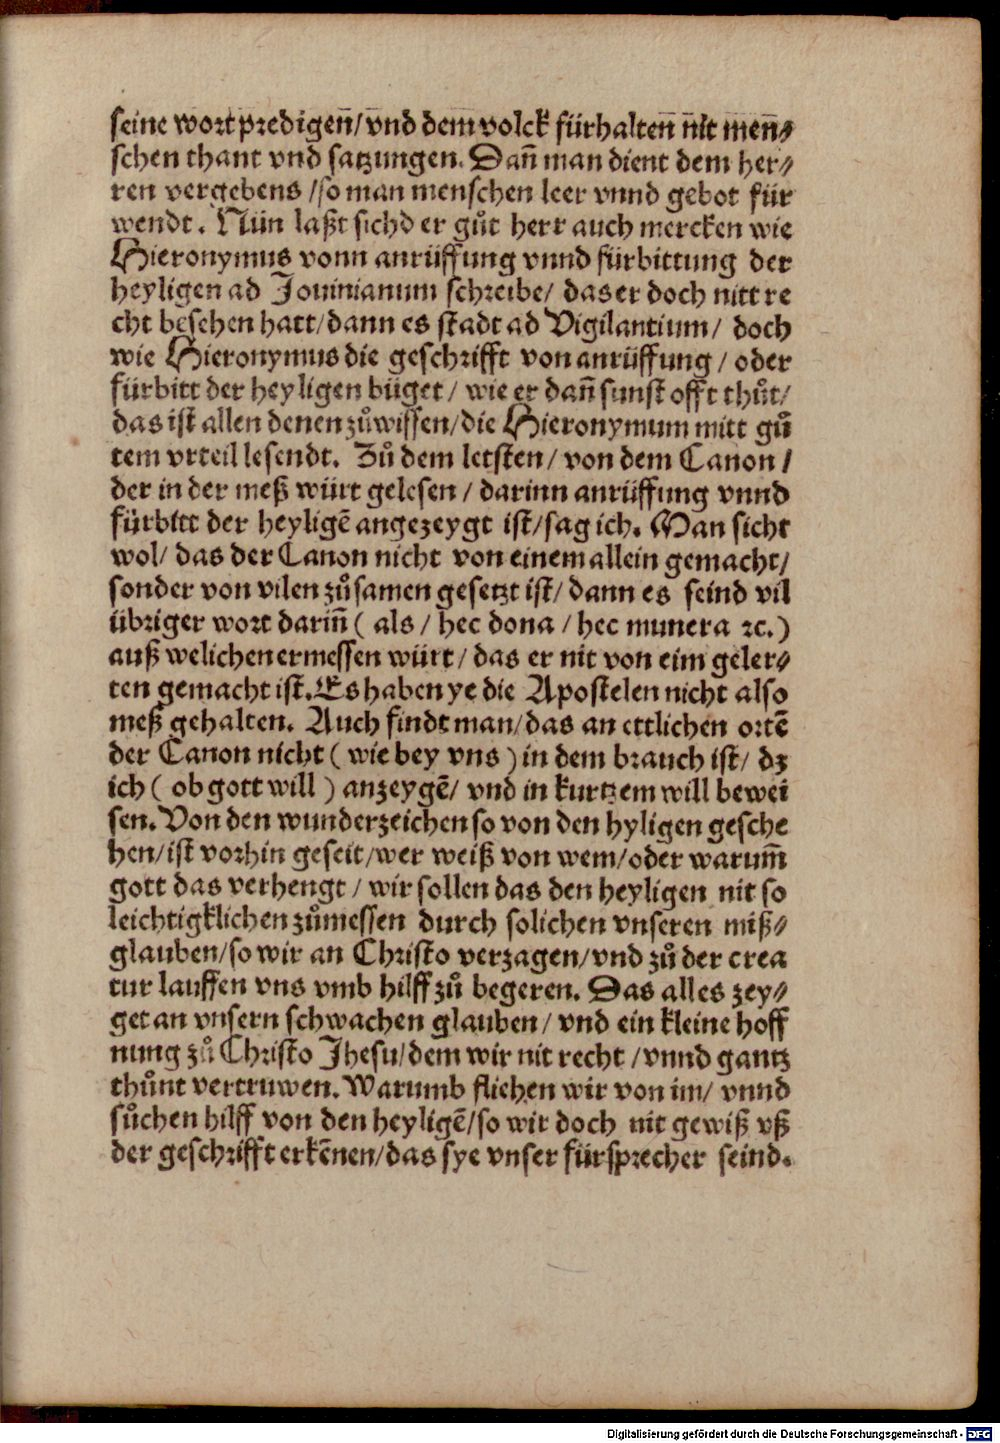 seine wort predigen̄/ vnd dem volck fürhalten̄ nit men̄⸗
schen thant vnd satzungen. Dan̄ man dient dem her⸗
ren vergebens /so man menschen leer vnnd gebot für
wendt. Nün laßt sichd er gůt herr auch mercken wie
Hieronymus vonn anrüffung vnnd fürbittung der
heyligen ad Jouinianum schreibe/ das er doch nitt re
cht besehen hatt/dann es stadt ad Vigilantium/ doch
wie Hieronymus die geschrifft von anrüffung / oder
fürbitt der heyligen büget / wie er dan̄ sunst offt thůt/
das ist allen denen zůwissen/die Hieronymum mitt gů
tem vrteil lesendt. Zů dem letsten/ von dem Canon /
der in der meß würt gelesen / darinn anrüffung vnnd
fürbitt der heyligē angezeygt ist/sag ich. Man sicht
wol/ das der Canon nicht von einem allein gemacht/
sonder von vilen zůsamen gesetzt ist/ dann es seind vil
übriger wort darin̄ ( als / hec dona / hec munera ꝛc.)
auß welichen ermessen würt/ das er nit von eim geler⸗
ten gemacht ist. Es haben ye die Apostelen nicht also
meß gehalten. Auch findt man/das an ettlichen ortē
der Canon nicht ( wie bey vns ) in dem brauch ist/ dz
ich ( ob gott will ) anzeygē/ vnd in kurtzem will bewei
sen. Von den wunderzeichen so von den hyligen gesche
hen/ist vorhin geseit/wer weiß von wem/oder warum̄
gott das verhengt / wir sollen das den heyligen nit so
leichtigklichen zůmessen durch solichen vnseren miß⸗
glauben/so wir an Christo verzagen/vnd zů der crea
tur lauffen vns vmb hilff zů begeren. Das alles zey⸗
get an vnsern schwachen glauben/ vnd ein kleine hoff
nung zů Christo Jhesu/dem wir nit recht /vnnd gantz
thůnt vertruwen. Warumb flichen wir von im/ vnnd
sůchen hilff von den heyligē/so wir doch nit gewiß vß
der geschrifft erkēnen/das sye vnser fürsprecher seind.
Digitalisierung gefördert durch die Deutsche Forschungsgemeinschaft - DFG